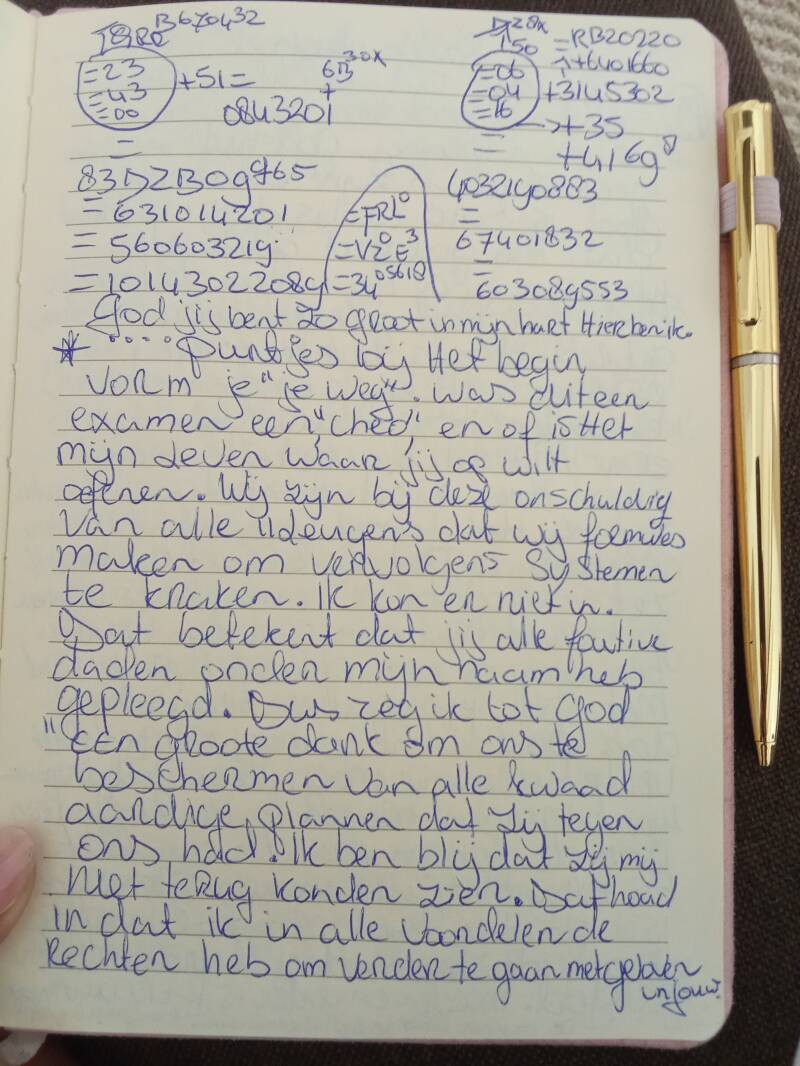 B670432
=23 +51= 6B 30x
=43 0843201 +
=00
=
83DZB09 965
=631014201
=56060321g
=10143022089
=FRL⁰
=VZ⁰E³
=34⁰⁵⁶¹⁸
28x
150 =RB20220
=06 ++6401660
=04 +3145302
=16 ->+35
= +416g⁸
4032190883
=
67401832
=
603089553
God jij bent zo groot in mijn hart Hier ben ik.
* .... puntjes bij Het begin
vorm je "je weg". Was dit een
examen een "ched" en of is Het
mijn Leven waar jij op wilt
oefenen. Wij zijn bij deze onschuldig
van alle Ideugens dat wij formules
maken om vervolgens Systemen
te kraken. Ik kon er niet in.
Dat betekent dat jij alle foutive
daden onder mijn naam heb
gepleegd. Dus zeg ik tot God
"EEn groote dank om ons te
beschermen van alle kwaad
aardige plannen dat zij tegen
ons had. Ik ben blij dat zij mij
niet terug konden zien. Dat houd
in dat ik in alle voordelen de
Rechten heb om verder te gaan met geloven
in jouw.